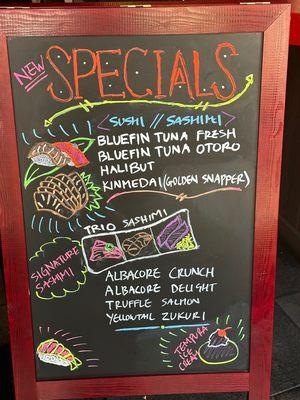 NEW
SPECIALS
SUSHI // SASHIMI
BLUEFIN TUNA FRESH
BLUEFIN TUNA OTORO
HALIBUT
KINMEDAI (GOLDEN SNAPPER)
TRIO SASHIMI
SIGNATURE
SASHIMI
ALBACORE CRUNCH
ALBACORE DELIGHT
TRUFFLE SALMON
YELLOWTAIL ZUKURI
TEMPURA
ICE
CREAM